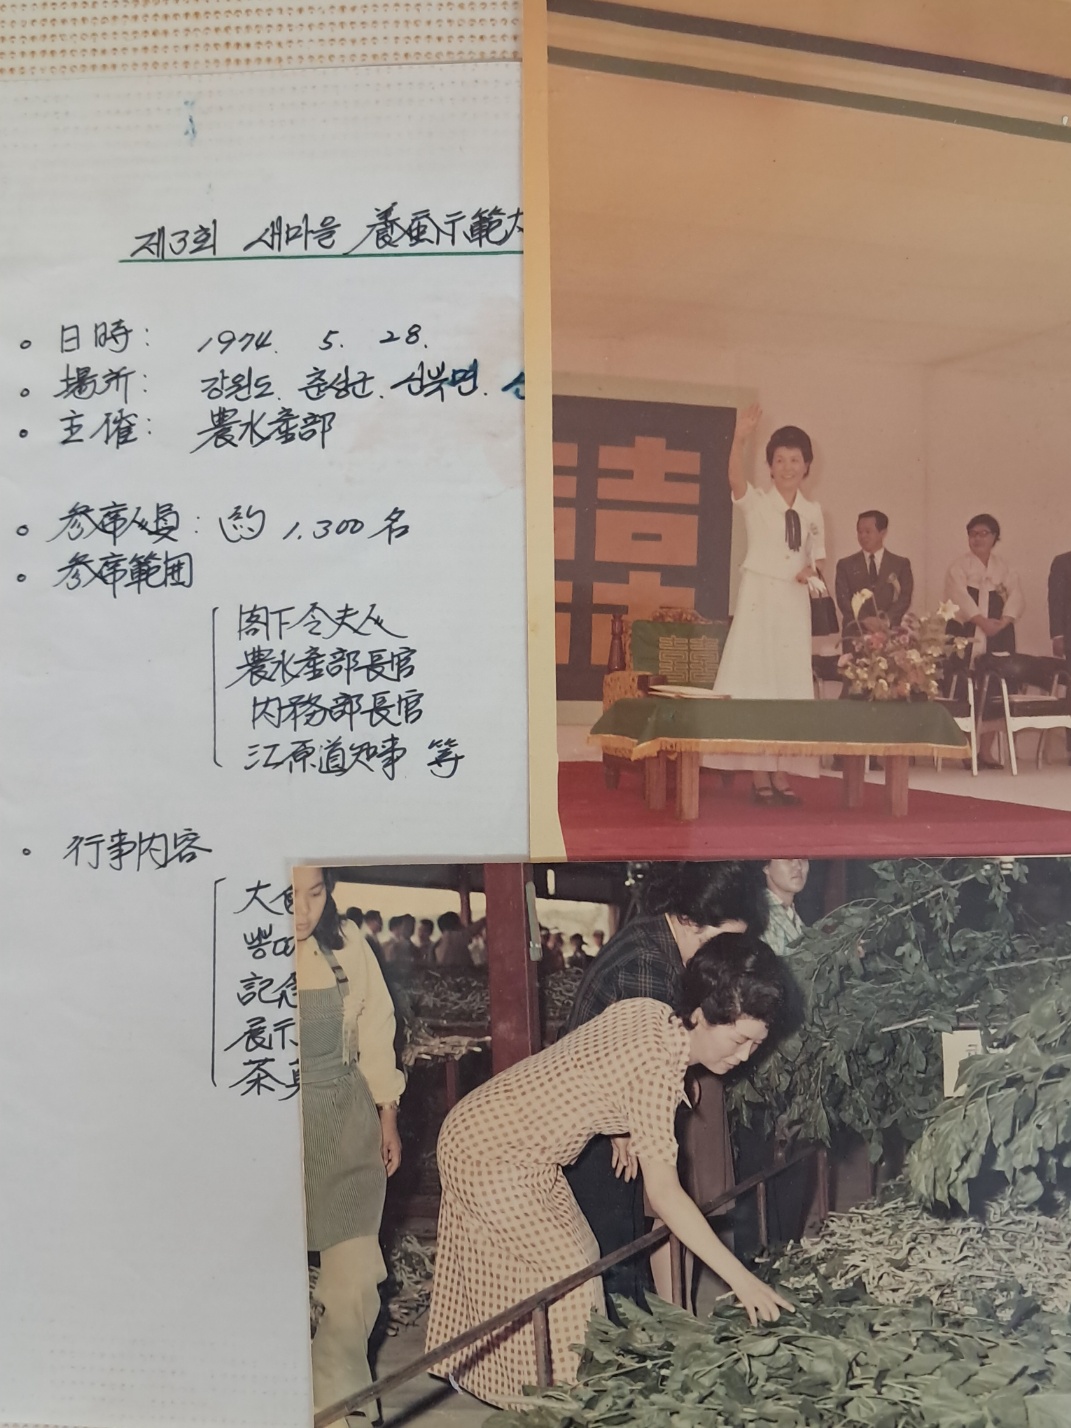 제3회 새마을 養蚕示範大
• 日時: 1974. 5. 28.
• 場所: 강원도. 춘성군. 신북면.
• 主催: 農水産部
• 参席人員: 約 1,300名
• 参席範囲
閣下令夫人
農水産部長官
内務部長官
江原道知事 等
• 行事内容
大
記念
展示
茶
囍